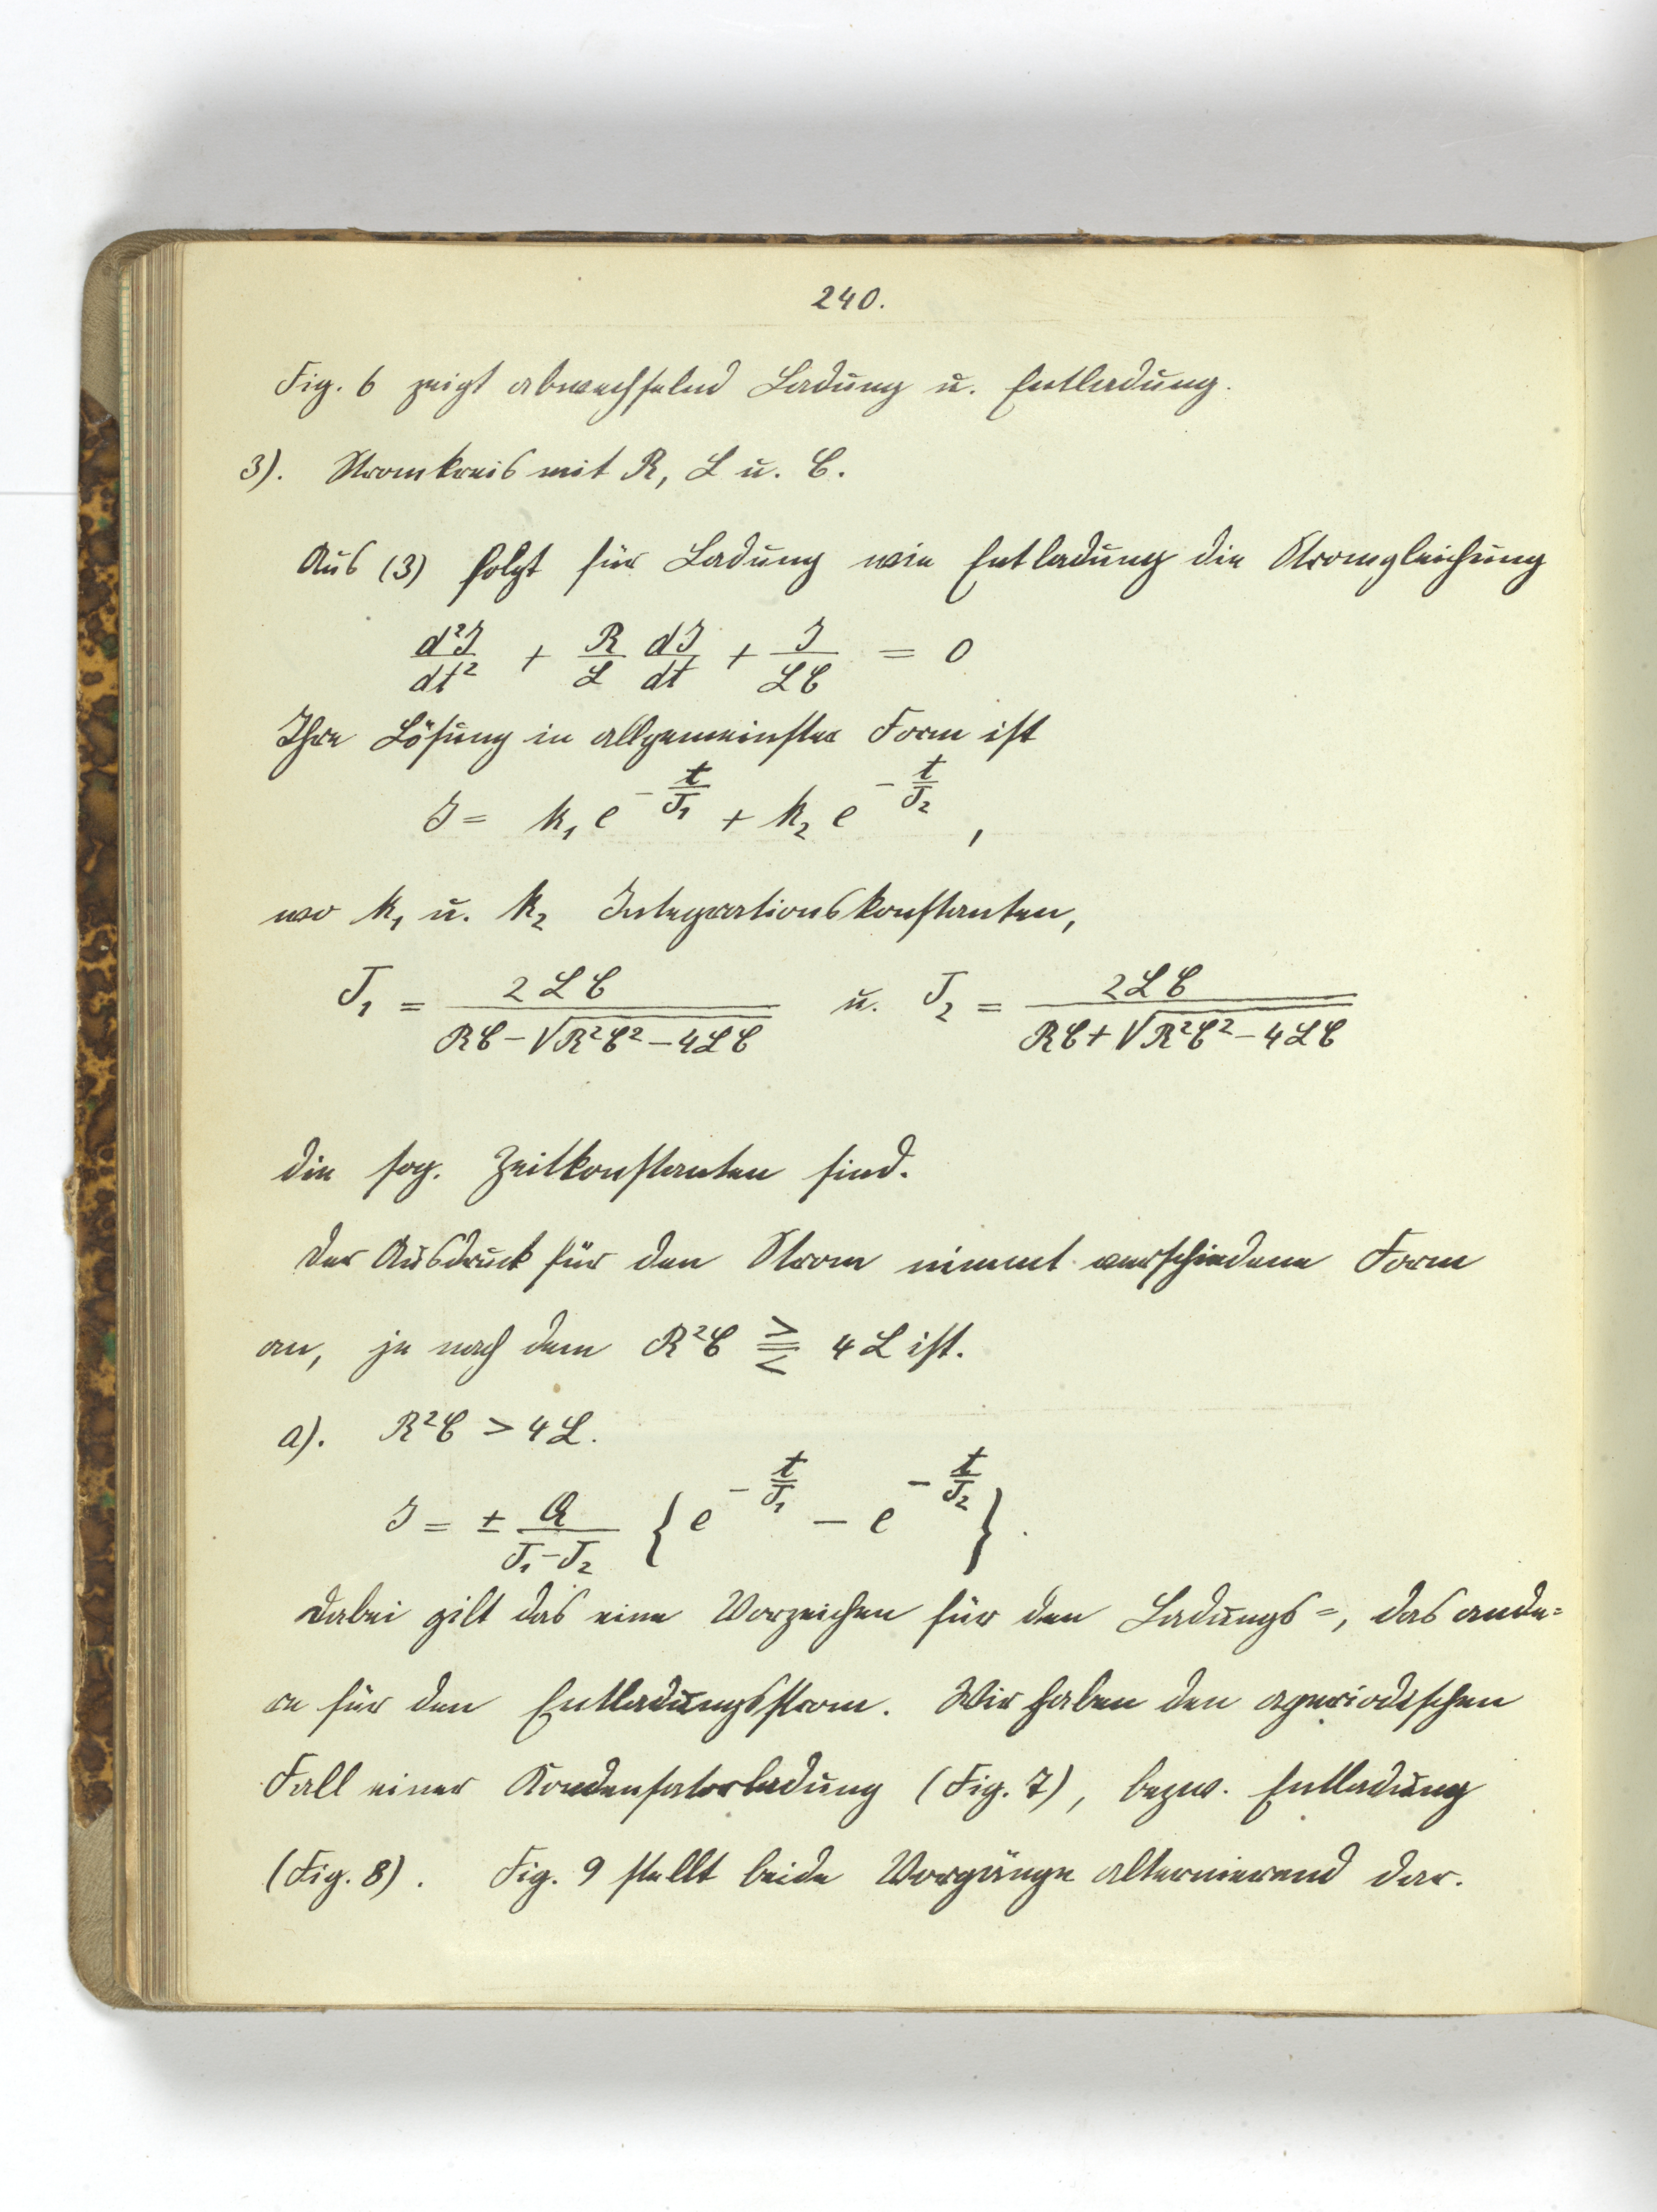 240.
Fig. 6 zeigt abwechselnd Ladung u. Entladung.
3). Stromkreis mit R, L u. C.
Aus (3) folgt für Ladung wie Entladung die Stromgleichung
d²J/dt² + R/L dJ/dt + J/LC = 0
Ihre Lösung in allgemeinster Form ist
J = k₁ e^(-t/T₁) + k₂ e^(-t/T₂),
wo k₁ u. k₂ Integrationskonstanten,
T₁ = 2LC / (RC - √(R²C² - 4LC)) u. T₂ = 2LC / (RC + √(R²C² - 4LC))
die sog. Zeitkonstanten sind.
Der Ausdruck für den Strom nimmt verschiedene Form
an, je nach dem R²C ⪌ 4L ist.
a). R²C > 4L.
J = ± Q/(T₁-T₂) {e^(-t/T₁) - e^(-t/T₂)}.
Dabei gilt das eine Vorzeichen für den Ladungs=, das ande=
re für den Entladungsstrom. Wir haben den aperiodischen
Fall einer Kondensatorladung (Fig. 7), bezw. Entladung
(Fig. 8). Fig. 9 stellt beide Vorgänge alternierend dar.